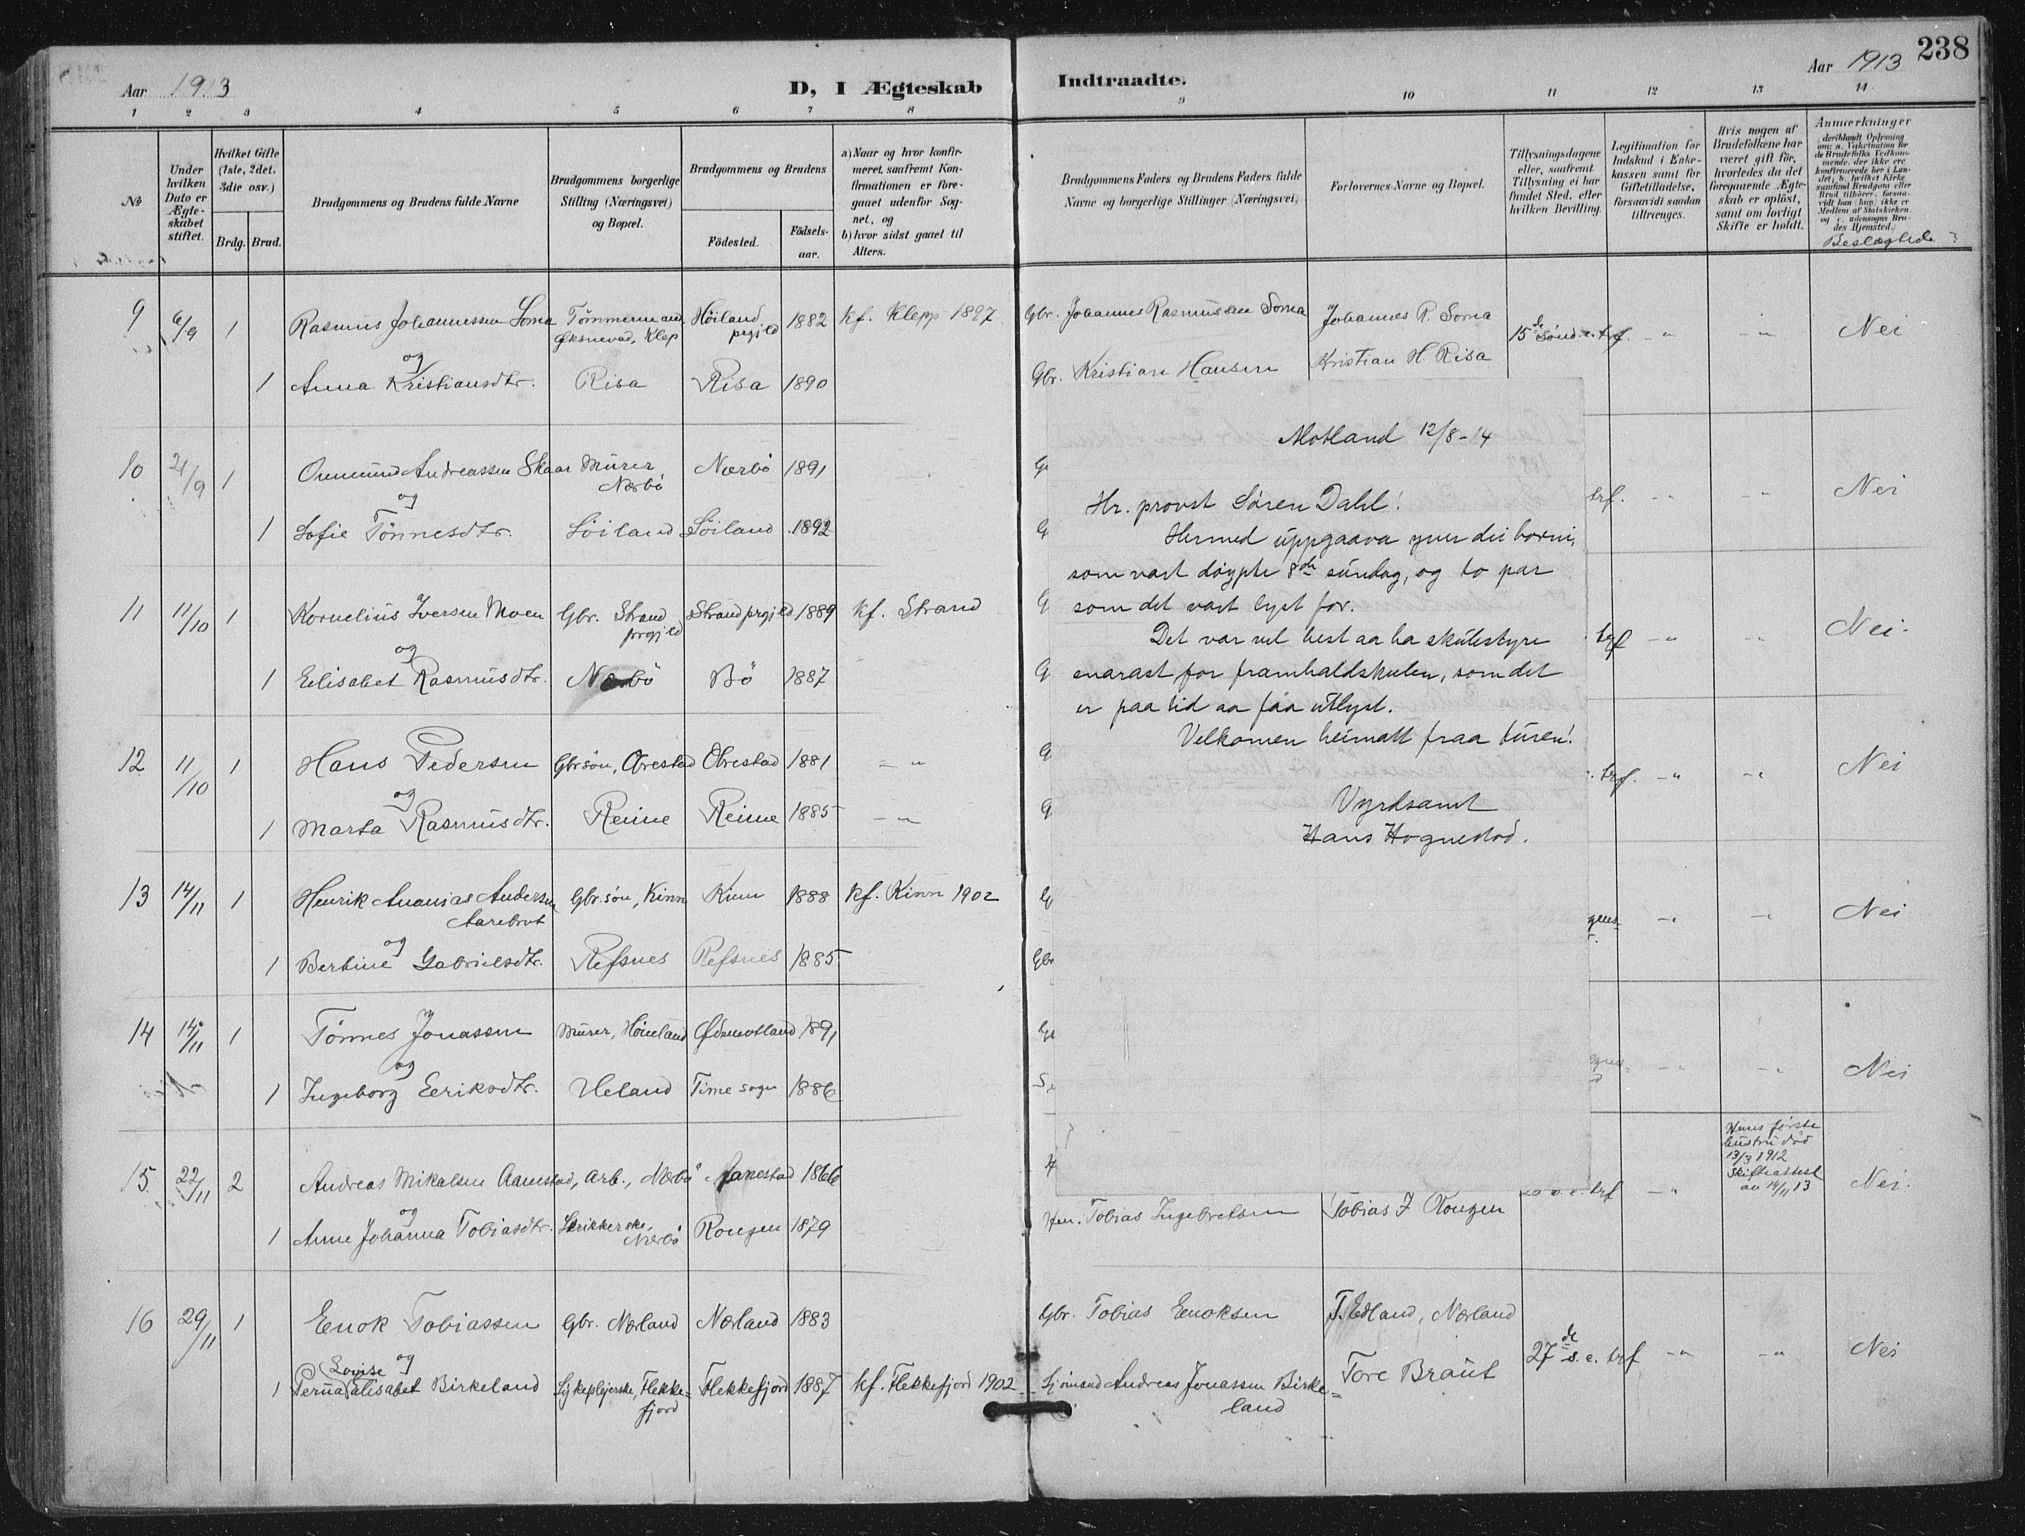 Aar 1913
D, I Ægteskab
Indtraadte.
Aar 1913
238
1 2 3 4 5 6 7 8 9 10 11 12 13 14
No
Under hvilken Dato er Ægteskabet stiftet.
Hvilket Gifte (1ste, 2det, 3die osv.)
Brdg. Brud.
Brudgommens og Brudens fulde Navne
Brudgommens borgerlige Stilling (Næringsvei) og Bopæl.
Brudgommens og Brudens
Födested.
Födselsaar.
a) Naar og hvor konfirmeret, saafremt Konfirmationen er foregaaet udenfor Sognet, og
b) hvor sidst gaaet til Alters.
Brudgommens Faders og Brudens Faders fulde Navne og borgerlige Stillinger (Næringsvei)
Forlovernes Navne og Bopæl.
Tillysningsdagene eller, saafremt Tillysning ei har fundet Sted, efter hvilken Bevilling.
Legitimation for Indskud i Enkekassen samt for Giftetilladelse, forsaavidt saadan tiltrænges.
Hvis nogen af Brudefolkene har været gift för, hvorledes da det foregaaende Ægteskab er oplöst, samt om lovligt Skifte er holdt.
Anmærkninger
deriblandt Oplysning om: a. Vakcination for de Brudefolks Vedkommende, der ikke ere konfirmerede her i Landet; b. hvilket Kirkesamfund Brudgom eller Brud tilhörer, forsaavidt han (hun) ikke er Medlem af Statskirken, og c. udensogns Brudes Hjemsted.
Beslægtede?
9 6/9 1 Rasmus Johannessen Soma Tømmermand, Øksnevad, Klep Høiland prgjld 1882 kf. Klepp 1897 Gbr. Johannes Rasmussen Soma Johannes R. Soma 15de Sønd. e. trf. Nei
og
1 Anna Kristiansdtr. Risa Risa 1890 Gbr. Kristian Hansen Kristian H. Risa
10 21/9 1 Ommund Andreassen Skaar Murer, Nærbö Nærbö 1891 trf. Nei
og
1 Sofie Tönnesdtr. Söiland Söiland 1892
11 11/10 1 Kornelius Iversen Moen Gbr. Strand prgjld Strand prgjld 1889 kf. Strand trf Nei.
og
1 Elisabet Rasmusdtr. Nærbö Bö 1887
12 11/10 1 Hans Pedersen Gbr.søn, Obrestad Obrestad 1881 trf. Nei
og
1 Marta Rasmusdtr. Reime Reime 1885
13 14/11 1 Henrik Ananias Andersen Aarebrot Gbr.søn, Kinn Kinn 1888 kf. Kinn 1902 Nei
og
1 Bertine Gabrielsdtr. Refsnes Refsnes 1885 Gbr
14 14/11 1 Tönnes Jonassen Murer, Höiland Ödemotland 1891 Nei
og
1 Ingeborg Eeriksdtr. Ueland Time sogn 1886
15 22/11 2 Andreas Mikalsen Aanestad, arb., Nærbö 1866 trf Hans første hustru död 13/3 1912 Skifteattest av 14/11 13 Nei.
og
1 Anne Johanna Tobiasdtr. Strikkerske, Nærbö Rongen 1879 Tobias Ingebretsen Tobias I Rongen
16 29/11 1 Enok Tobiassen Gbr. Nærland Nærland 1883 Gbr. Tobias Enoksen T. Edland, Nærland 27de s. e. trf Nei
Lovise og
1 Perna Elisabet Birkeland Sykeplejerske, Flekkefjord Flekkefjord 1887 kf. Flekkefjord 1902 Sjömand Andreas Jonassen Birkeland Tore Braut
Motland 12/8-14
Hr. provst Søren Dahl!
Hermed uppgaava yver dei borni,
som vart døypte 8de sundag, og to par
som det vart lyst for.
Det var vel best aa ha skulestyre
snarast for framhaldskulen, som det
er paa tid aa faa utlyst.
Velkomen heimatt fraa turen!
Vyrdsamt
Hans Hognestad.